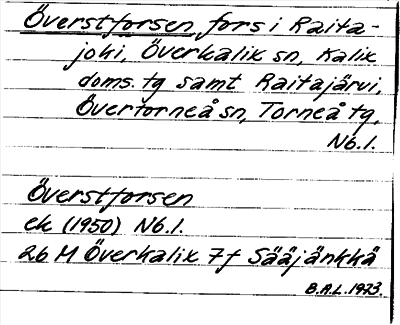 Överstforsen, fors i Raita-
joki, Överkalix sn, Kalix
doms. tg samt Raitajärvi,
Övertorneå sn, Torneå tg,
Nb.l.
Överstforsen
ek (1950) Nb.l.
26 M Överkalix 7f Sääjänkkä
B.A.L. 1973.